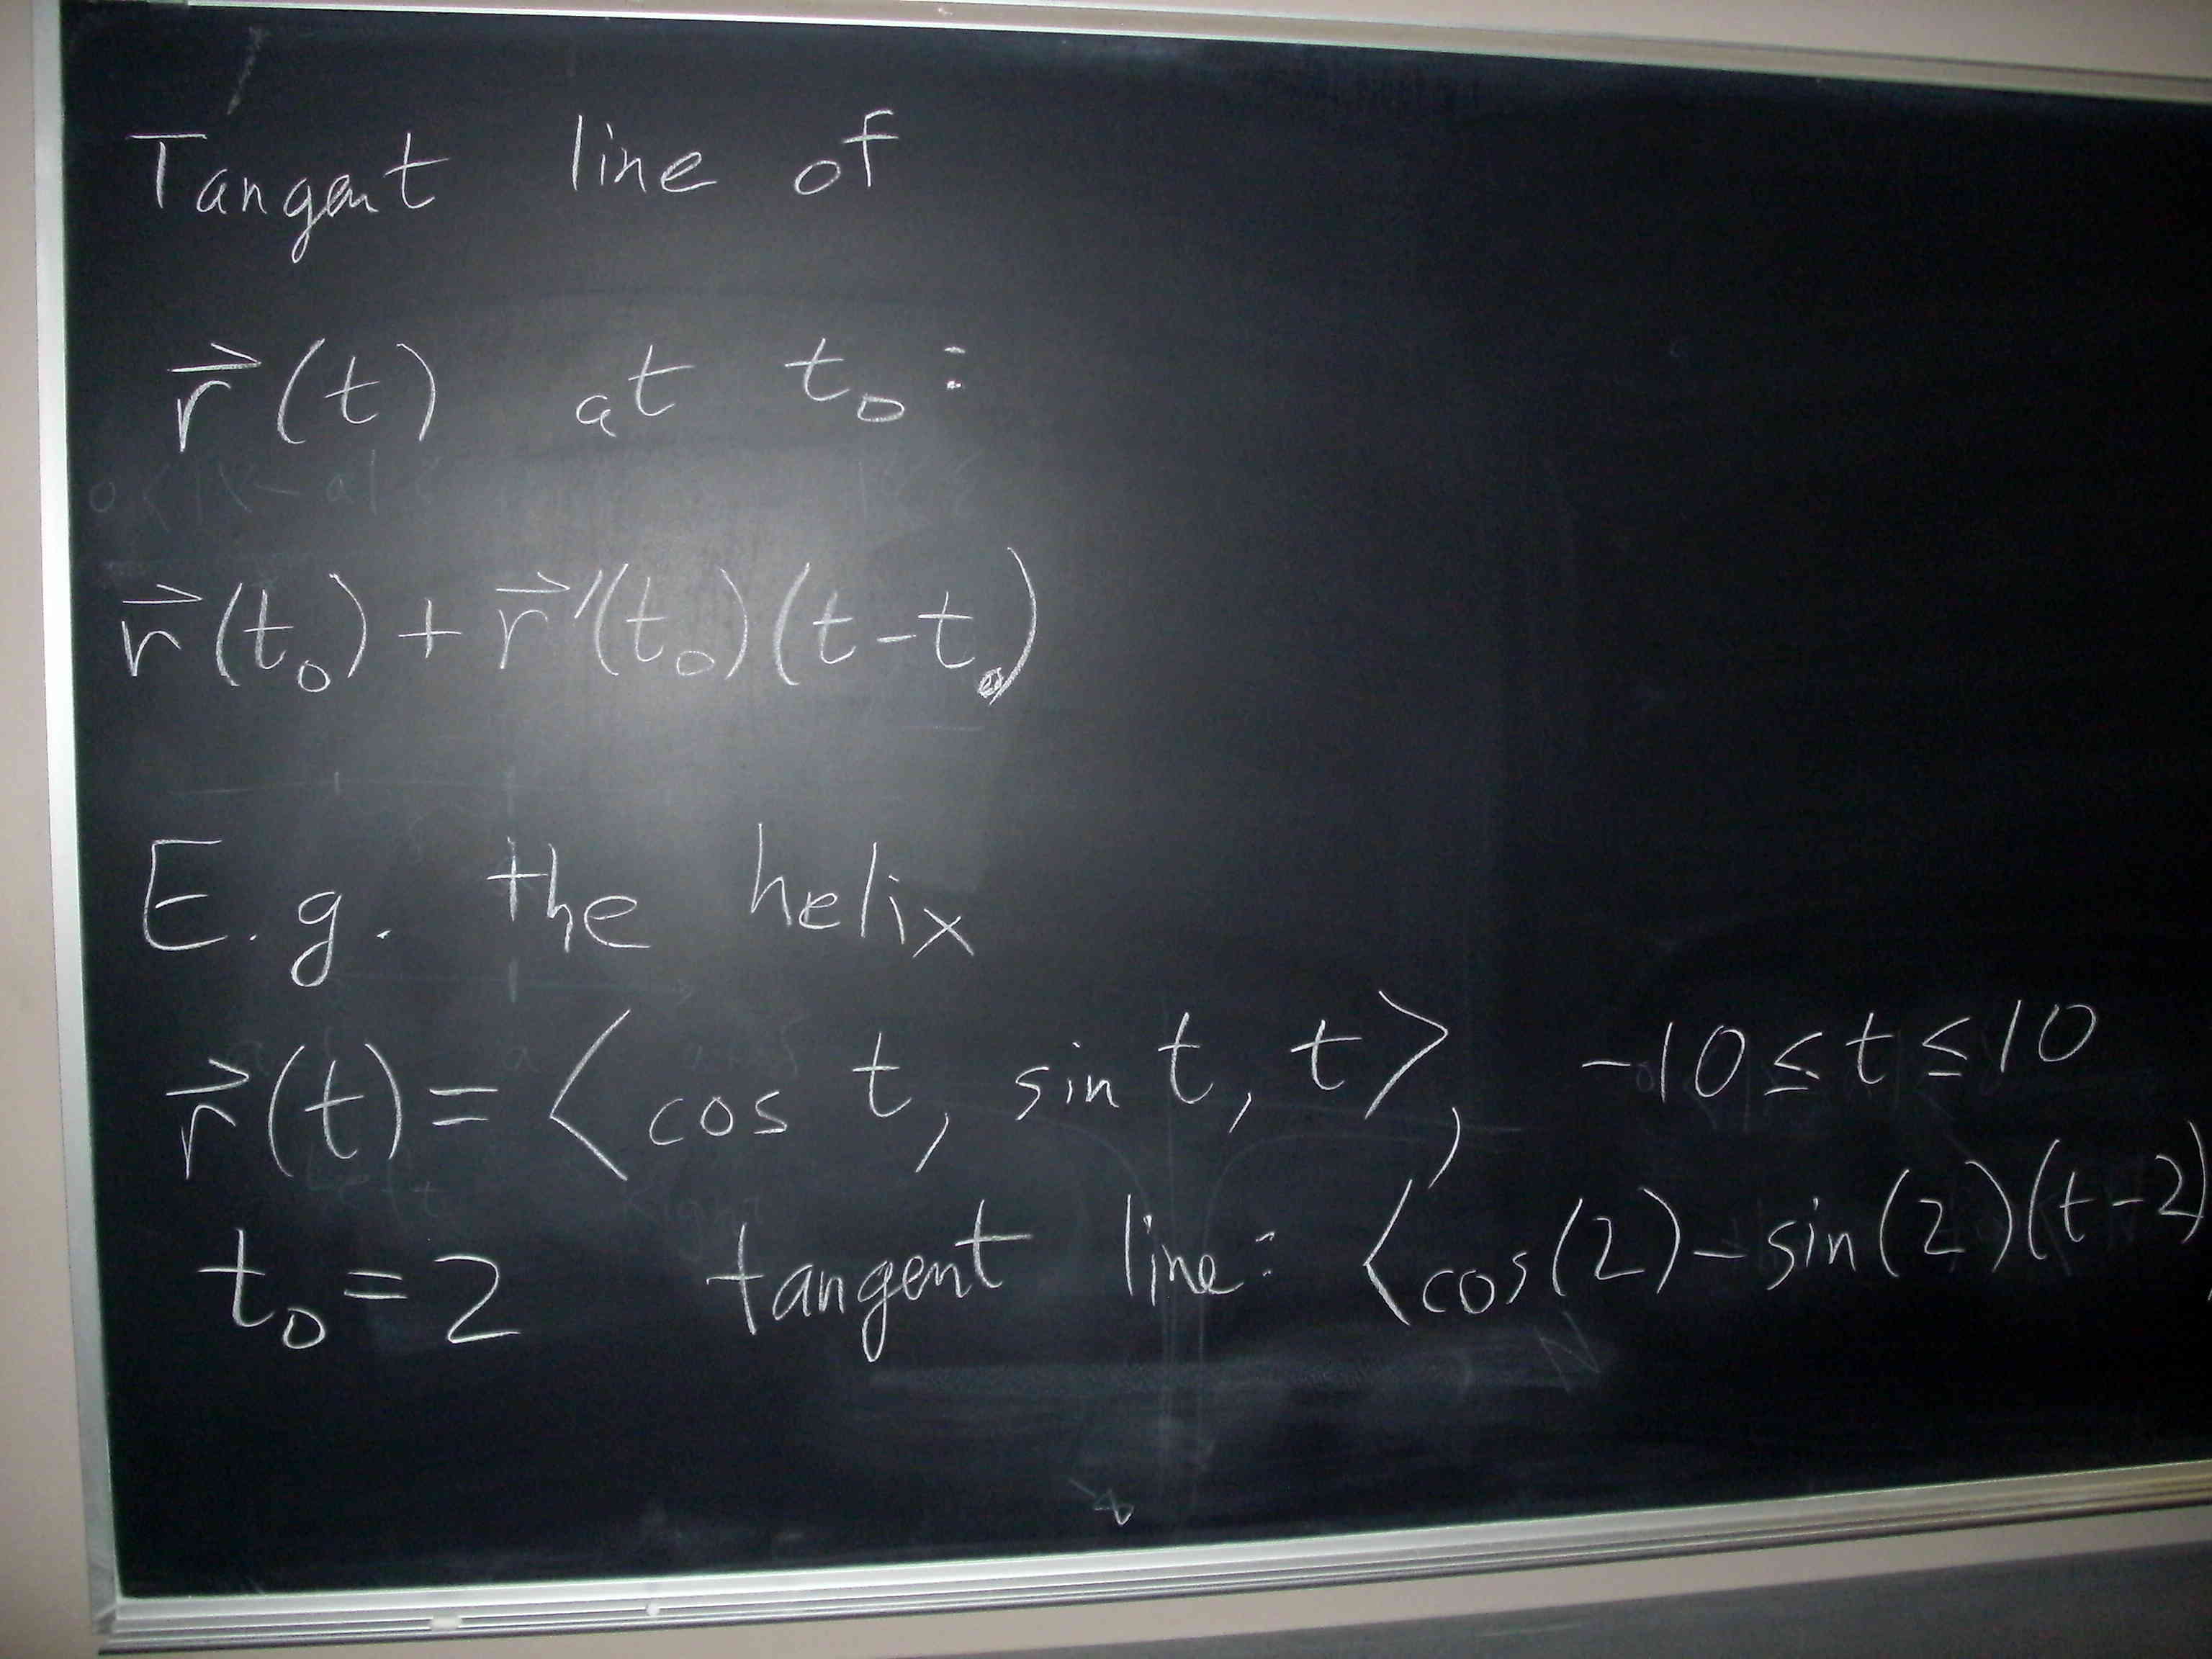 Tangent line of
r⃗(t) at t₀:
r⃗(t₀) + r⃗′(t₀)(t-t₀)
E.g. the helix
r⃗(t) = ⟨cos t, sin t, t⟩, -10 ≤ t ≤ 10
t₀ = 2 tangent line: ⟨cos(2) - sin(2)(t-2)